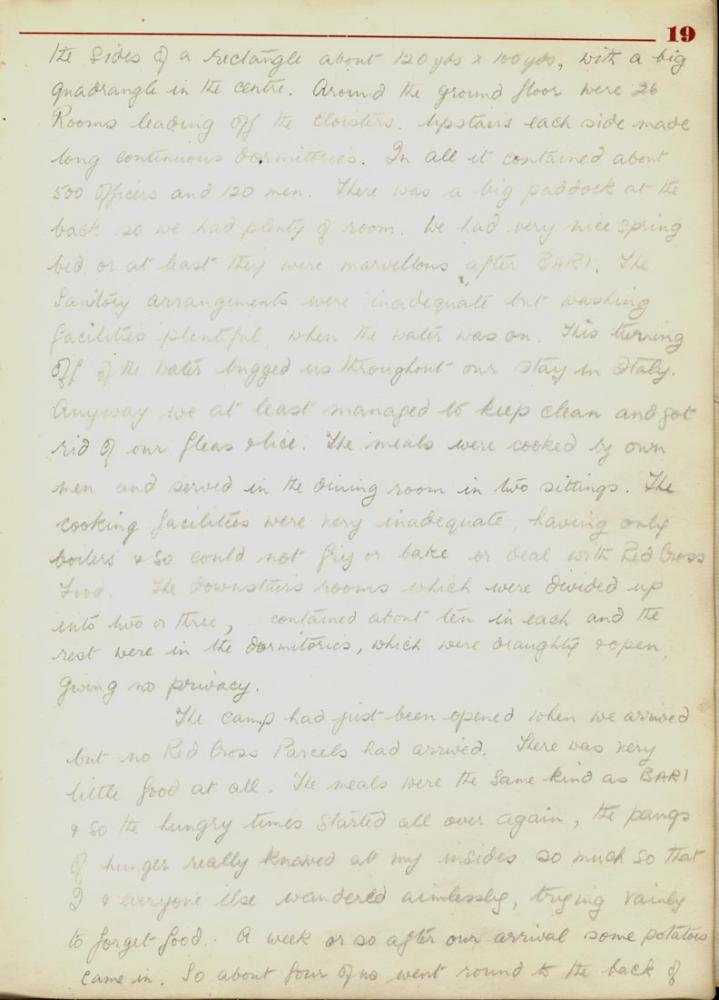 19
the sides of a rectangle about 120 yds x 100 yds, with a big
quadrangle in the centre. Around the ground floor were 26
Rooms leading off the cloisters. Upstairs each side made
long continuous dormitories. In all it contained about
500 Officers and 120 men. There was a big paddock at the
back so we had plenty of room. We had very nice spring
bed or at least they were marvellous after BARI. The
Sanitary arrangements were inadequate but washing
facilities plentful, when the water was on. This turning
off of the water bugged us throughout our stay in Italy.
Anyway we at least managed to keep clean and got
rid of our fleas & lice. The meals were cooked by own
men and served in the dining room in two sittings. The
cooking facilities were very inadequate, having only
boilers & so could not fry or bake or deal with Red Cross
Food. The downstairs rooms which were divided up
into two or three, contained about ten in each and the
rest were in the dormitories, which were draughty & open,
giving no privacy.
The camp had just been opened when we arrived
but no Red Cross Parcels had arrived. There was very
little food at all. The meals were the same kind as BARI
& so the hungry times started all over again, the pangs
of hunger really knawed at my insides so much so that
I & everyone else wandered aimlessly, trying vainly
to forget food. A week or so after our arrival some potatoes
came in. So about four of us went round to the back of